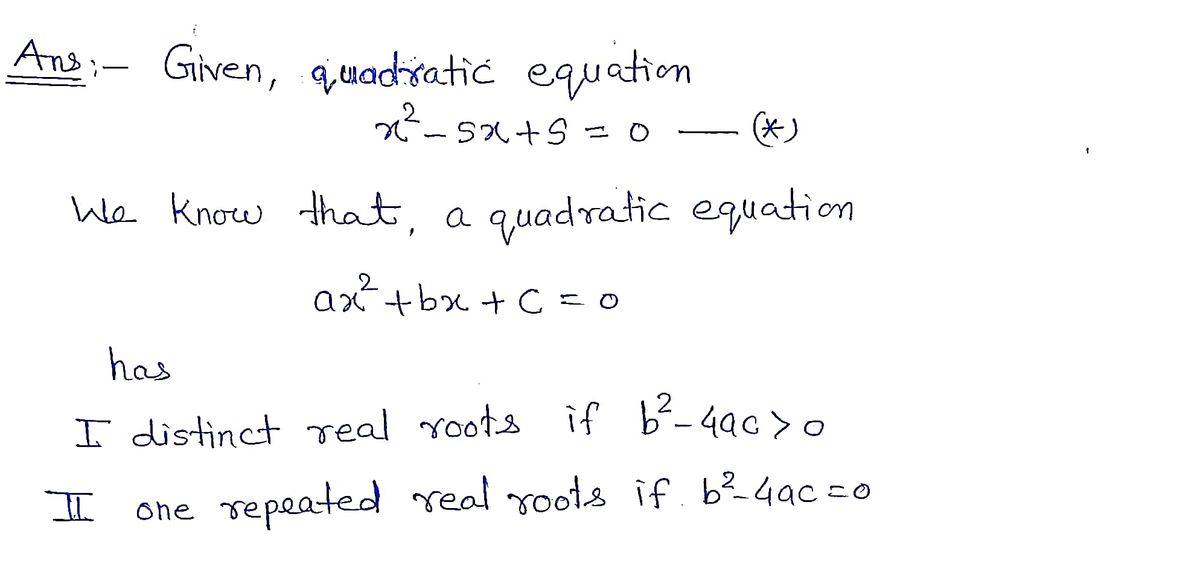 Ans:- Given, quadratic equation
x² - sx + s = 0 — (*)
We know that, a quadratic equation
ax² + bx + c = 0
has
I distinct real roots if b² - 4ac > 0
II one repeated real roots if b² - 4ac = 0